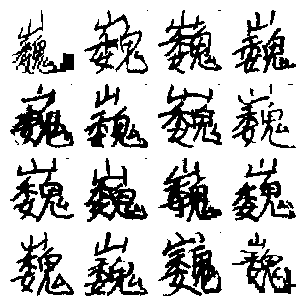 巍巍巍巍
巍巍巍巍
巍巍巍巍
巍巍巍巍